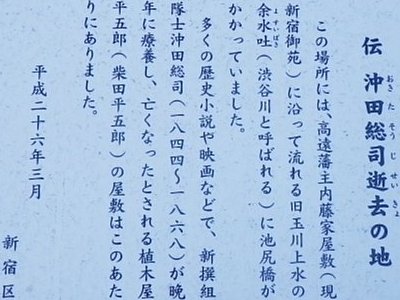 伝 沖田総司逝去の地
おきた そうじ せいきょ
この場所には、高遠藩主内藤家屋敷（現
新宿御苑）に沿って流れる旧玉川上水の
余水吐（渋谷川と呼ばれる）に池尻橋が
よすいばき
かかっていました。
多くの歴史小説や映画などで、新撰組
隊士沖田総司（一八四四〜一八六八）が晩
年に療養し、亡くなったとされる植木屋
平五郎（柴田平五郎）の屋敷はこのあた
りにありました。
平成二十六年三月
新宿区